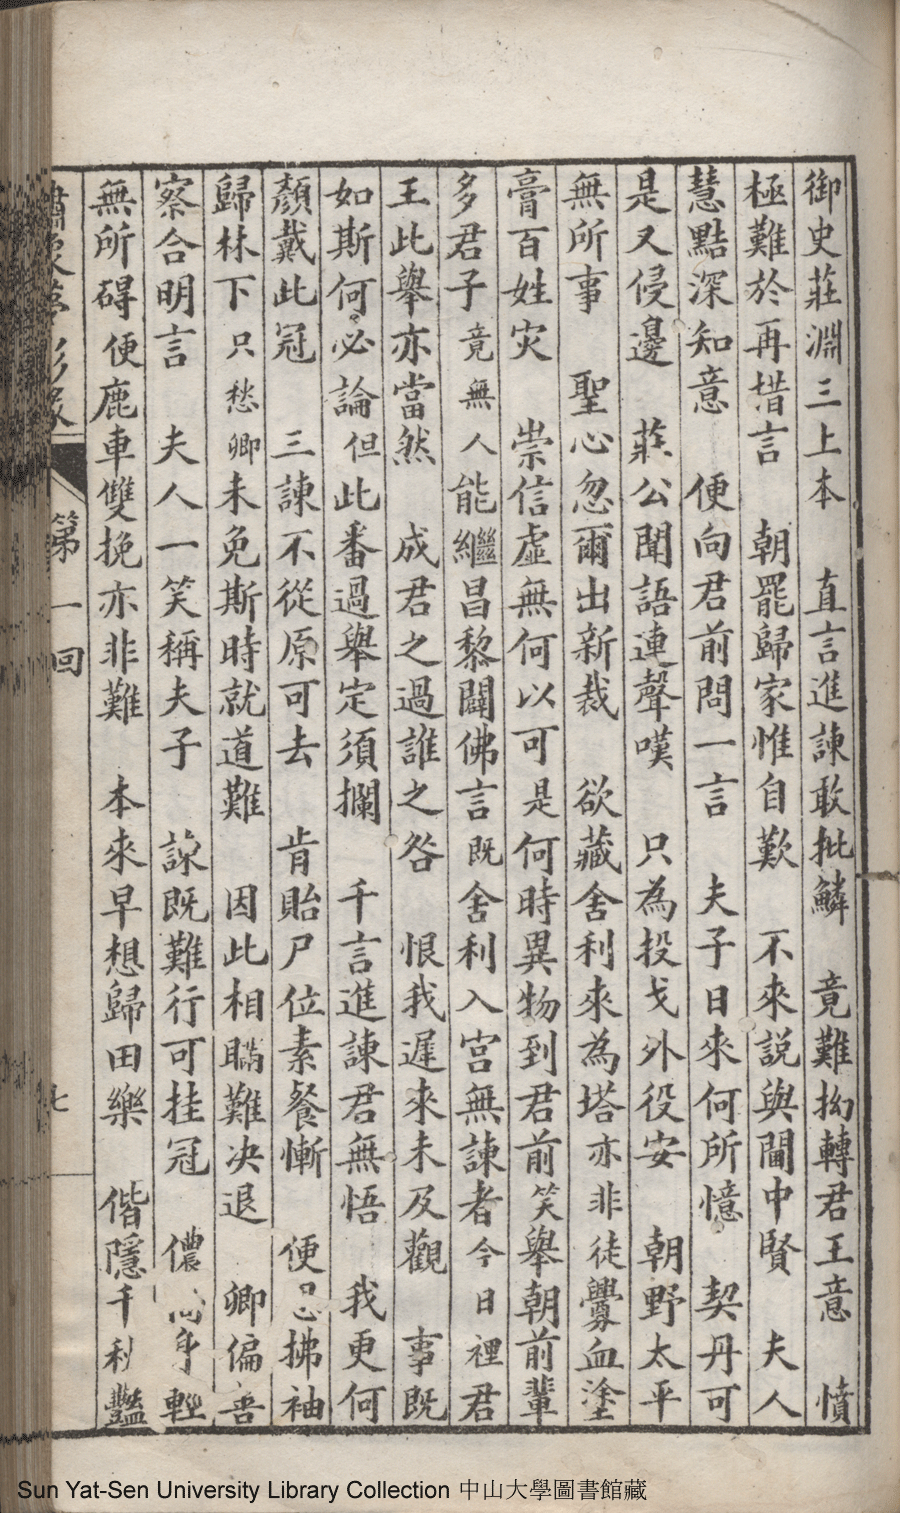 御史莊淵三上本　直言進諫敢批鱗　竟難拗轉君王意　憤
極難於再措言　朝罷歸家惟自歎　不來説與閫中賢　夫人
慧點深知意　便向君前問一言　夫子日來何所憶　契丹可
是又侵邊　莊公聞語連聲嘆　只為投戈外役安　朝野太平
無所事　聖心忽爾出新裁　欲藏舍利來為塔亦非徒釁血塗
膏百姓灾　崇信虛無何以可是何時異物到君前笑舉朝前輩
多君子竟無人能繼昌黎闢佛言既舍利入宮無諫者今日裡君
王此舉亦當然　成君之過誰之咎　恨我遲來未及觀　事既
如斯何必論但此番過舉定須攔　千言進諫君無悟　我更何
顏戴此冠　三諫不從原可去　肯貽尸位素餐慚　便　拂袖
歸林下只愁卿未免斯時就道難　因此相瞞難决退　卿偏善
察合明言　夫人一笑稱夫子　諫既難行可挂冠　儂　身輕
無所碍便鹿車雙挽亦非難　本來早想歸田樂　偕隱千秋豔
第一回
七
Sun Yat-Sen University Library Collection 中山大學圖書館藏